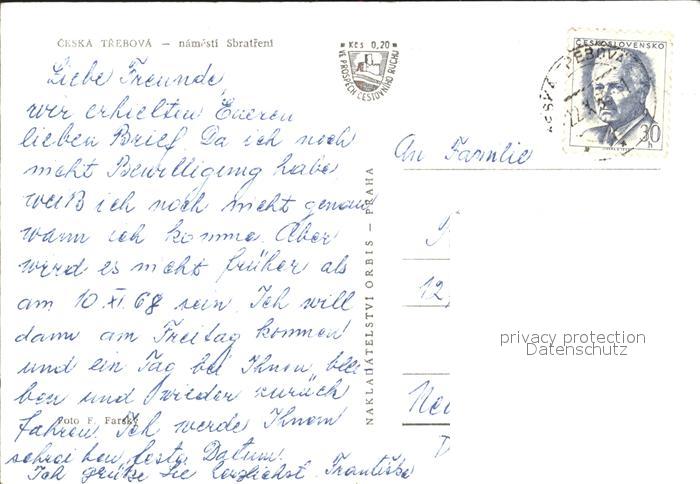 ČESKÁ TŘEBOVÁ – náměstí Sbratření
Kčs 0,20
VE PROSPĚCH CESTOVNÍHO RUCHU
ČESKOSLOVENSKO
30 h
Liebe Freunde,
wir erhielten Eueren
lieben Brief. Da ich noch
nicht Bewilligung habe
weiß ich noch nicht genau
wann ich komme. Aber
wird es nicht früher als
am 10. XI. 68 sein. Ich will
dann am Freitag kommen
und ein Tag bei Ihnen blei
ben und wieder zurück
fahren. Ich werde Ihnen
Foto F. Farský
schreiben festes Datum.
Ich grüße Sie herzlichst Františka
NAKLADATELSTVÍ ORBIS – PRAHA
An Familie
12
privacy protection
Datenschutz